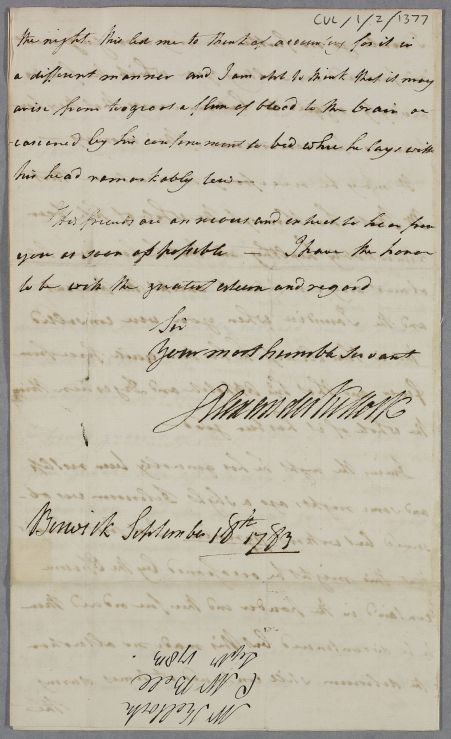 CUL/1/2/1377
the night this led me to think of accounting for it in
a different manner and I am apt to think that it may
arise from too great a flow of blood to the brain oc
casioned by his confinement to bed where he lays with
his head remarkably low.
His friends are anxious and intreet to hear from
you as soon as possible — I have the honor
to be with the greatest esteem and regard
Sir
Your most humble servant
Alexander Kellock
Berwick September 18th 1783
Mr Kellock
C. Mr Bell
Septr 1783